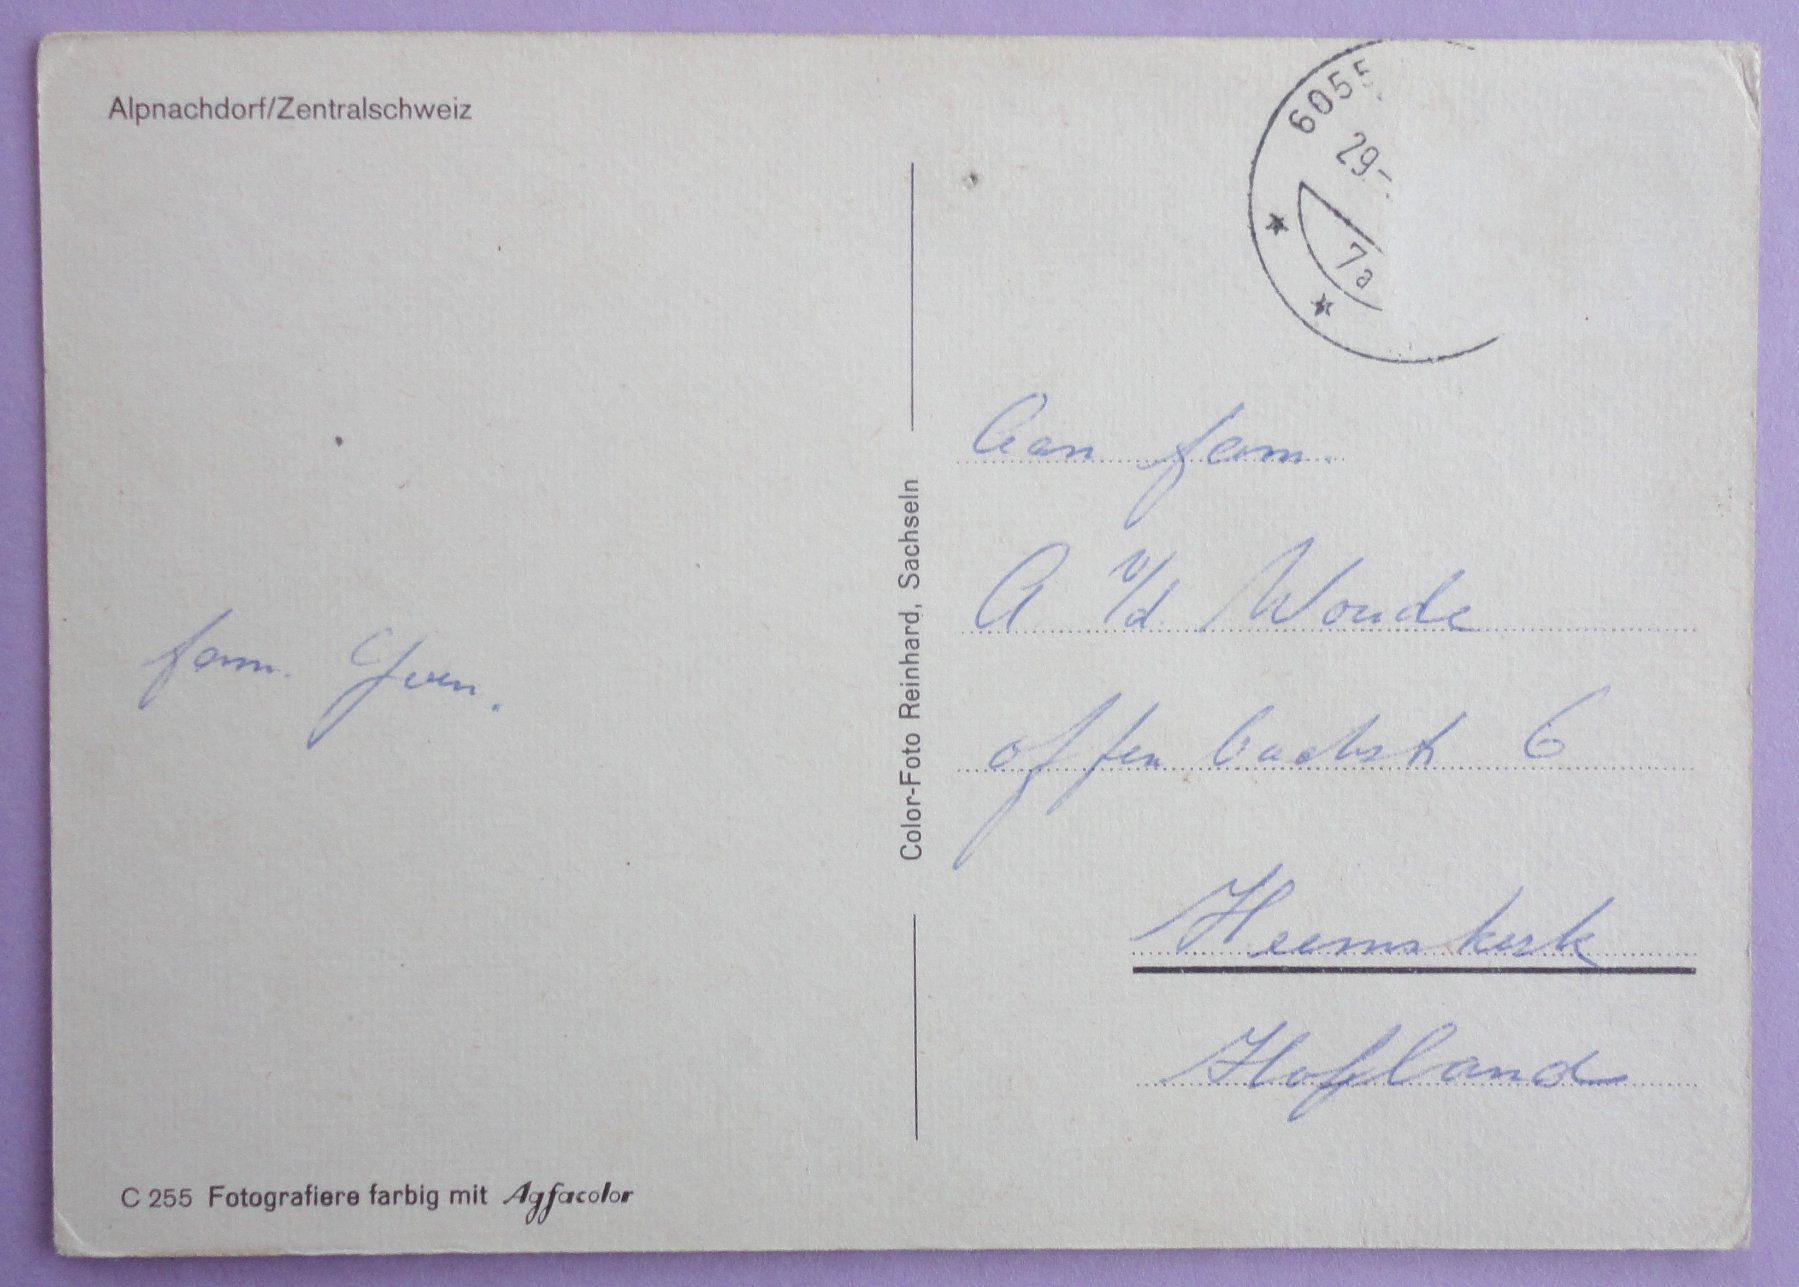 Alpnachdorf/Zentralschweiz
6055
29-
7a
Aan fam.
A v/d Woude
offenbachstr 6
Heemskerk
Holland
fam.
Color-Foto Reinhard, Sachseln
C 255 Fotografiere farbig mit Agfacolor